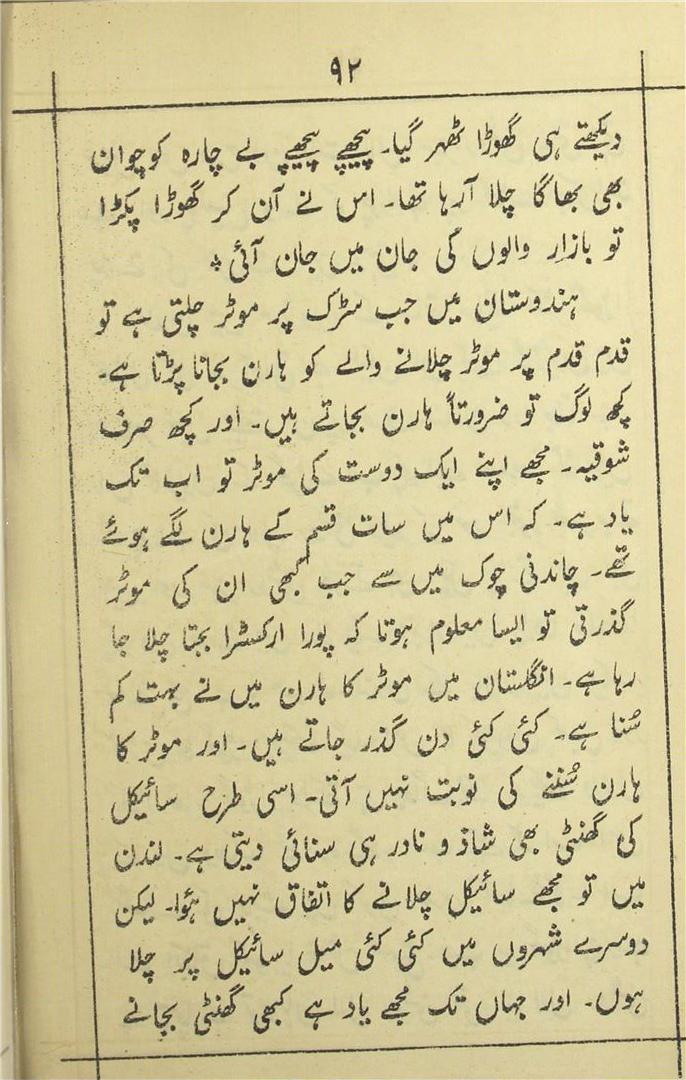 ۹۲
دیکھتے ہی گھوڑا ٹھہر گیا۔ پیچھے پیچھے بے چارہ کوچوان
بھی بھاگا چلا آرہا تھا۔ اس نے آن کر گھوڑا پکڑا
تو بازار والوں کی جان میں جان آئی ٭
ہندوستان میں جب سڑک پر موٹر چلتی ہے تو
قدم قدم پر موٹر چلانے والے کو ہارن بجانا پڑتا ہے۔
کچھ لوگ تو ضرورتاً ہارن بجاتے ہیں۔ اور کچھ صرف
شوقیہ۔ مجھے اپنے ایک دوست کی موٹر تو اب تک
یاد ہے۔ کہ اس میں سات قسم کے ہارن لگے ہوئے
تھے۔ چاندنی چوک میں سے جب کبھی ان کی موٹر
گذرتی تو ایسا معلوم ہوتا کہ پورا ارکسٹرا بجتا چلا جا
رہا ہے۔ انگلستان میں موٹر کا ہارن میں نے بہت کم
سُنا ہے۔ کئی کئی دن گذر جاتے ہیں۔ اور موٹر کا
ہارن سُننے کی نوبت نہیں آتی۔ اسی طرح سائیکل
کی گھنٹی بھی شاذ و نادر ہی سنائی دیتی ہے۔ لندن
میں تو مجھے سائیکل چلانے کا اتفاق نہیں ہؤا۔ لیکن
دوسرے شہروں میں کئی کئی میل سائیکل پر چلا
ہوں۔ اور جہاں تک مجھے یاد ہے کبھی گھنٹی بجانے